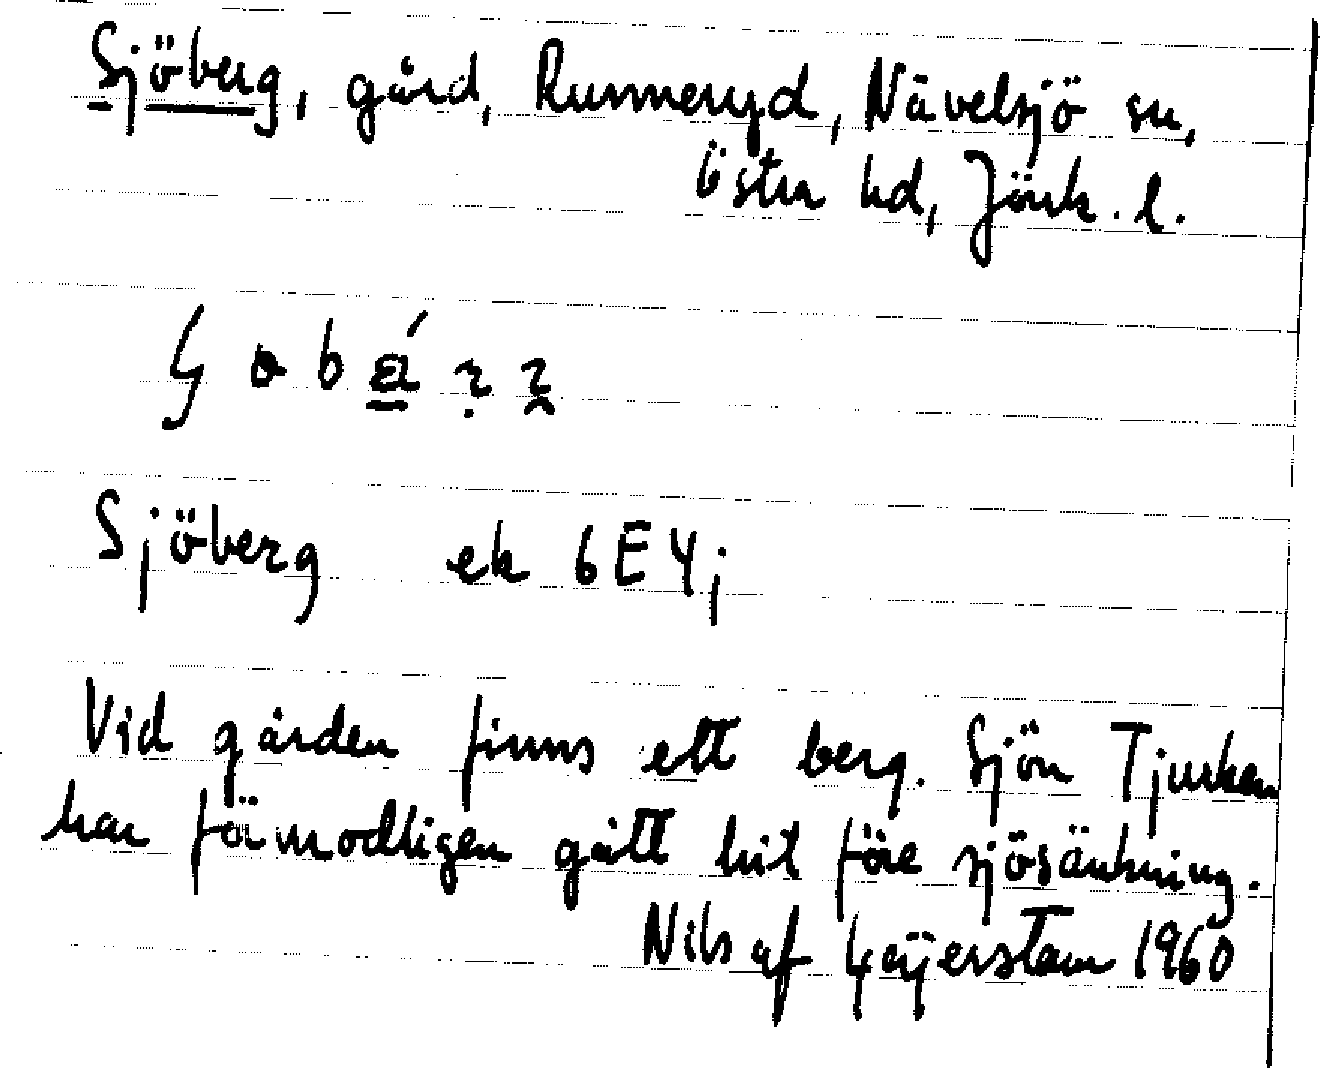 Sjöberg, gård, Runneryd, Nävelsjö sn,
Östra hd, Jönk. l.
Sjöberg ek 6E4j
Vid gården finns ett berg. Sjön Tjurken
har förmodligen gått hit före sjösänkning.
Nils af Geijerstam 1960